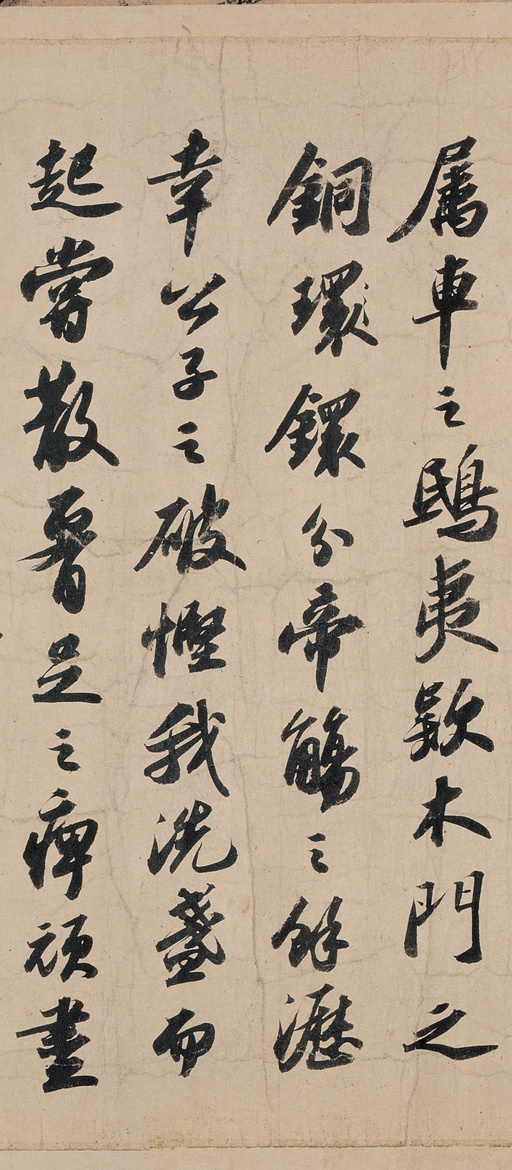 属車之鴟夷欵木門之
銅環鐶分帝觴之餘瀝
幸公子之破慳我洗盞而
起嘗散腰足之痺頑盡